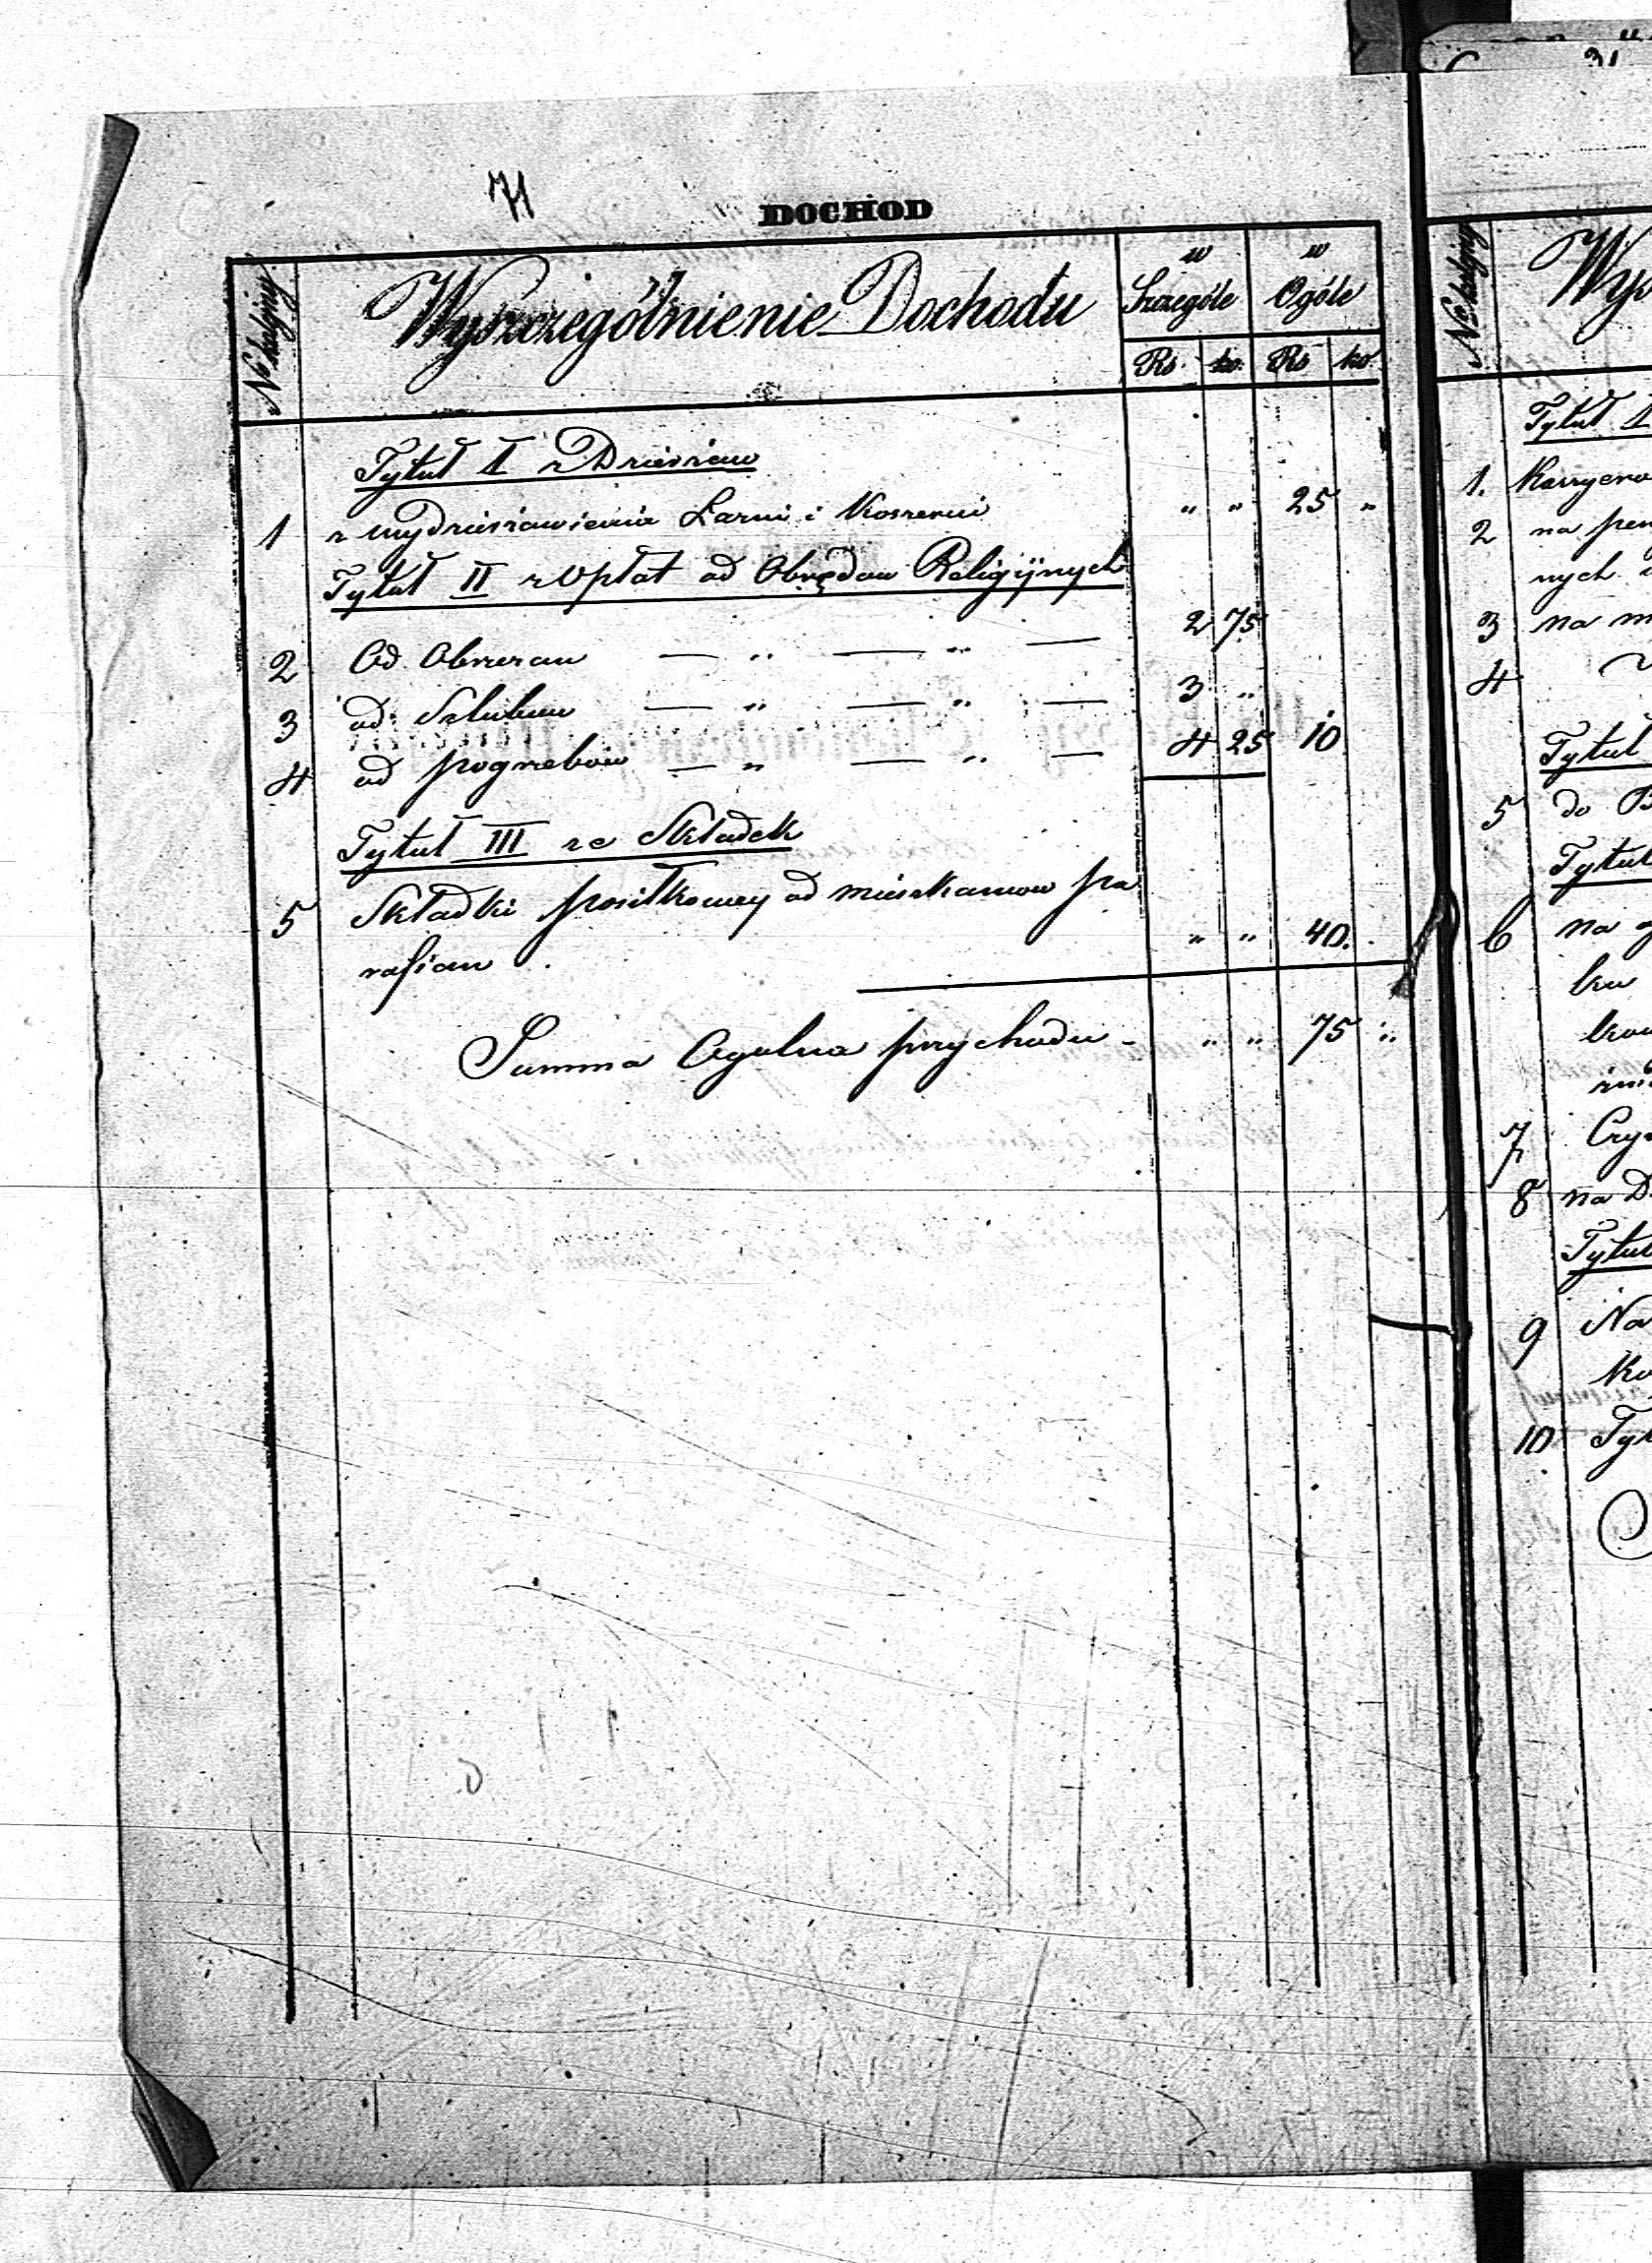 71
DOCHOD
No kolejny
Wyszczególnienie Dochodu
w Szczególe
w Ogóle
Rs. ko. Rs ko.
Tytuł I z Dzierżaw
1 z wydzierżawienia Łazni i Koszerni " " 25 "
Tytuł II z Opłat od Obrzędow Religijnych
2 Od Obrzezan — " — " — 2 75
3 od Szlubow — " — " — 3 "
4 od pogrzebów — " — " — 4 25 10
Tytuł III ze Składek
5 Składki posiłkowey od mieszkancow pa
rafian . " " 40.
Summa Ogolna przychodu - " " 75 "
No kolejny
Wys
Tytuł I
1.
2 na pen
nych
3 na m
4
Tytuł
5 do B
Tytuł
6 na
ku
7
8 na D
Tytuł
9 Na
10 Tyt